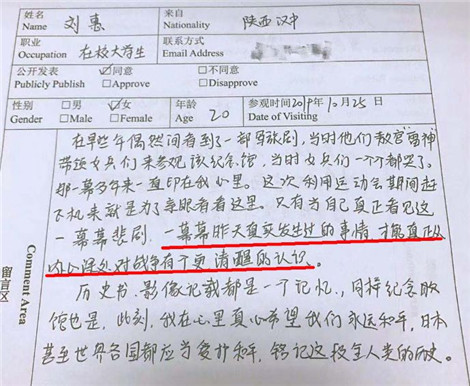 姓名
Name 刘惠
来自
Nationality 陕西汉中
职业
Occupation 在校大学生
联系方式
Email Address
公开发表 ☑同意 □不同意
Publicly Publish □Approve □Disapprove
性别 □男 ☑女
Gender □Male □Female
年龄
Age 20
参观时间2019年10月25日
Date of Visiting
留言区
Comment Area
在早些年偶然间看到了一部军旅剧,当时他们教官雷神
带领女兵们来参观该纪念馆,当时女兵们一个个都哭了。
那一幕多年来一直印在我心里。这次利用运动会期间赶
飞机来就是为了亲眼看看这里。只有当自己真正看见这
一幕幕悲剧,一幕幕昨天真实发生过的事情,才能真正从
内心深处对战争有了更清醒的认识。
历史书、影像记载都是一个记忆,同样纪念
馆也是,此刻,我在心里真心希望我们永远和平,日本
甚至世界各国都应当爱护和平,铭记这段全人类的历史。